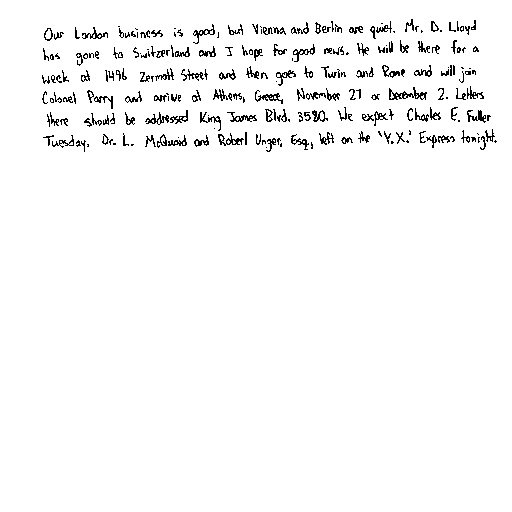 Our London business is good, but Vienna and Berlin are quiet. Mr. D. Lloyd
has gone to Switzerland and I hope for good news. He will be there for a
week at 1496 Zermott Street and then goes to Turin and Rome and will join
Colonel Parry and arrive at Athens, Greece, November 27 or December 2. Letters
there should be addressed King James Blvd. 3580. We expect Charles E. Fuller
Tuesday. Dr. L. McQuaid and Robert Unger, Esq., left on the 'Y.X.' Express tonight.